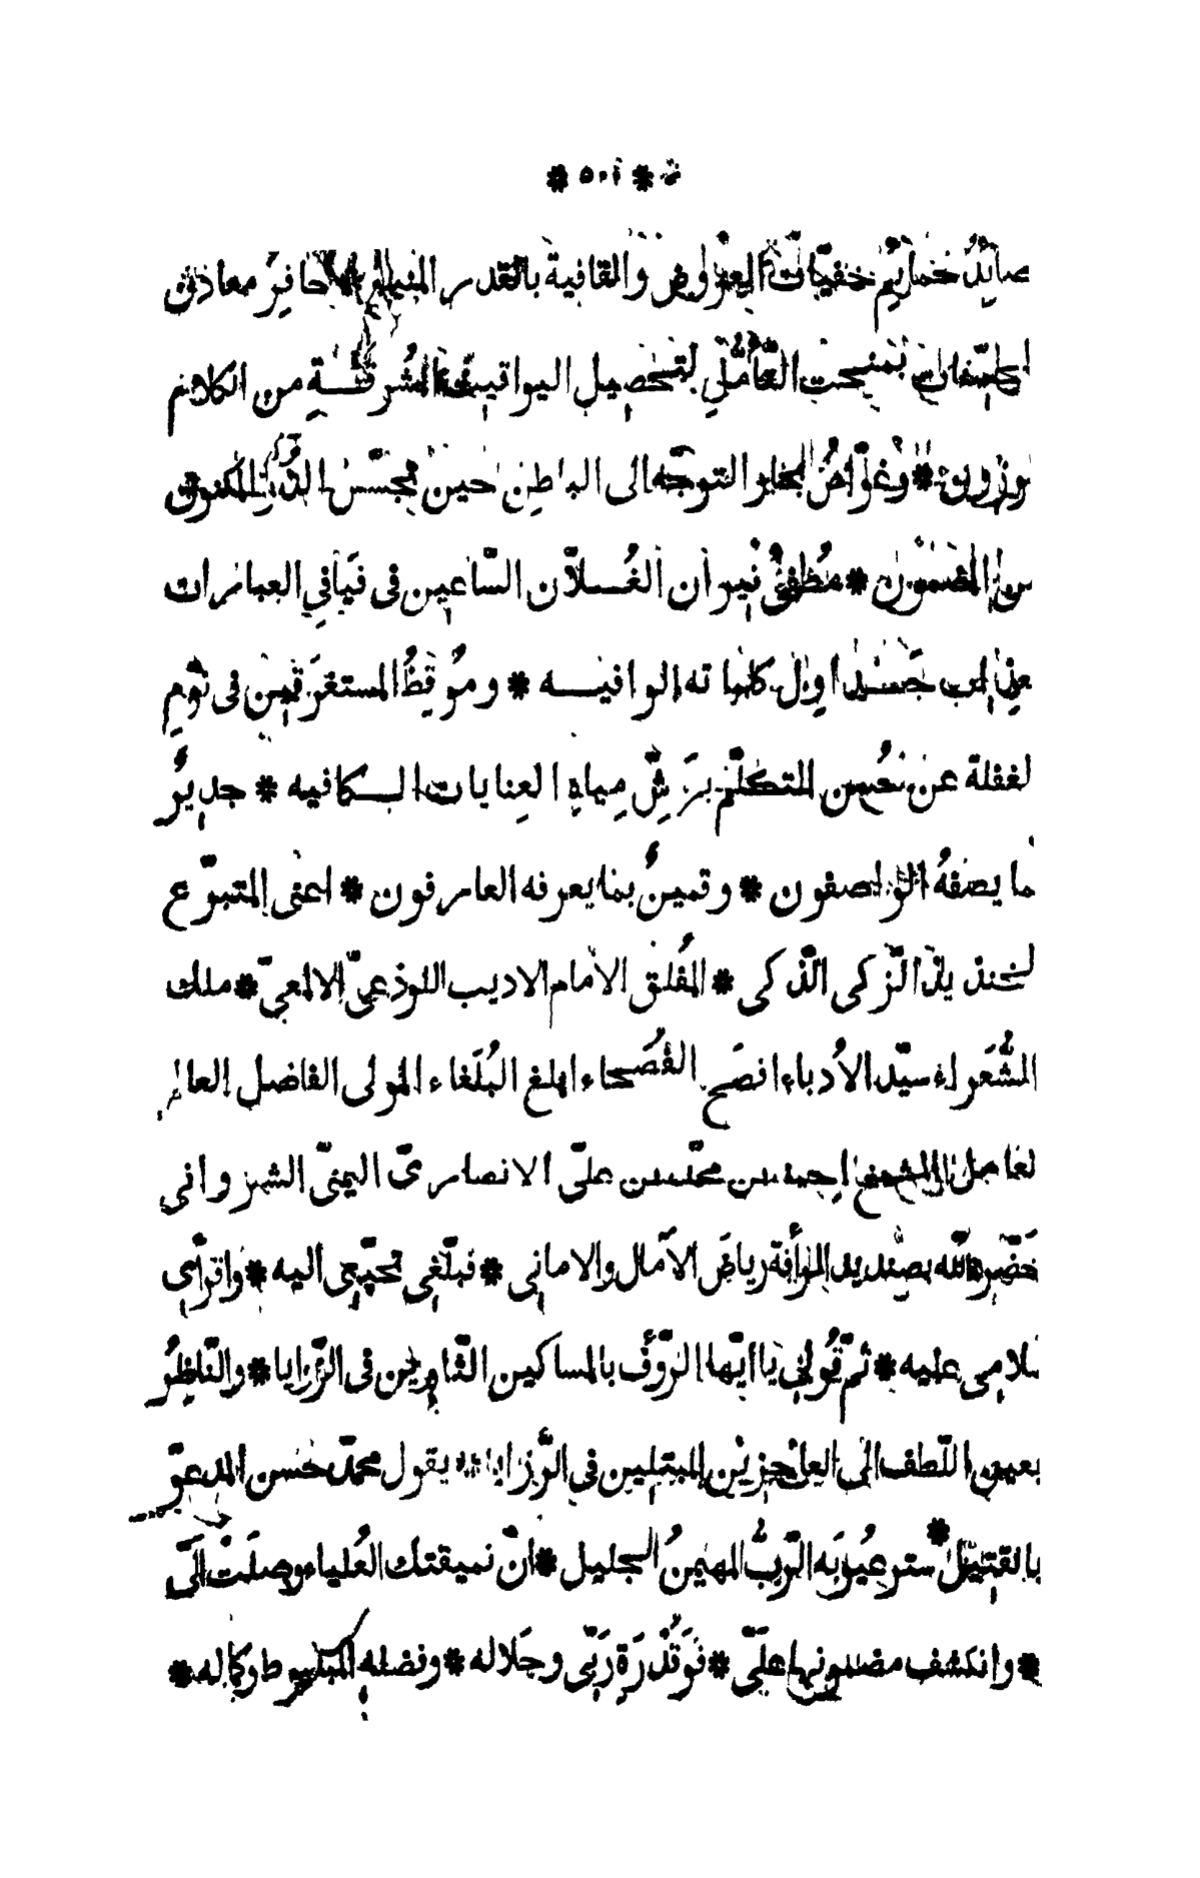 * ٥٠٦ *
خفيّات العروض والقافية بالقدر حافر معادن
التأمّل لتحصيل اليواقيت المشرقة من الكلام
الموزون * وغوّاص بحار التوجّه الى الباطن حين تجسّس الدّرّ المكنون
المضمون * مطفئ نيران الغُلاّن السّاعين فى فيافي العبارات
كلماته الوافيه * ومُوقِظُ المستغرَقين فى نَومِ
لغفلة عن حُسن التكلّم برَشِّ مِياهِ العِنايات الكافيه * جديرٌ
ما يصفهُ الواصفون * وقمينٌ بما يعرفه العارفون * اعنى المتبوّع
الزكى الذّكى * المُفلق الامام الاديب اللوذعىّ الالمعىّ * ملك
الشُّعَراء سيّد الاُدباء افصَح الفُصَحاء ابلغ البُلَغاء المولى الفاضل العالم
احمد بن محمّد بن علىّ الانصارىّ اليمنىّ الشروانى
خَضّر اللّه رياضَ الآمال والامانى * فبلّغى تحيّتى اليه * واقرأى
سلامى عليه * ثمّ قُولى يا ايّها الرّؤف بالمساكين الثّاوين فى الزّوايا * والنّاظِرُ
بعين اللّطف الى العاجزين المبتلين فى الرّزايا يقول محمّد حسن المدعوّ
بالقتيل * ستر عُيُوبَه الرّبُّ المهيمنُ الجليل * انّ نميقتك العُلياء وصلَت الىّ
* وانكشف مضمونها علَىّ * فوَقُدْرَةِ رَبّى وجَلاله * وفضله المبسوط وكماله *